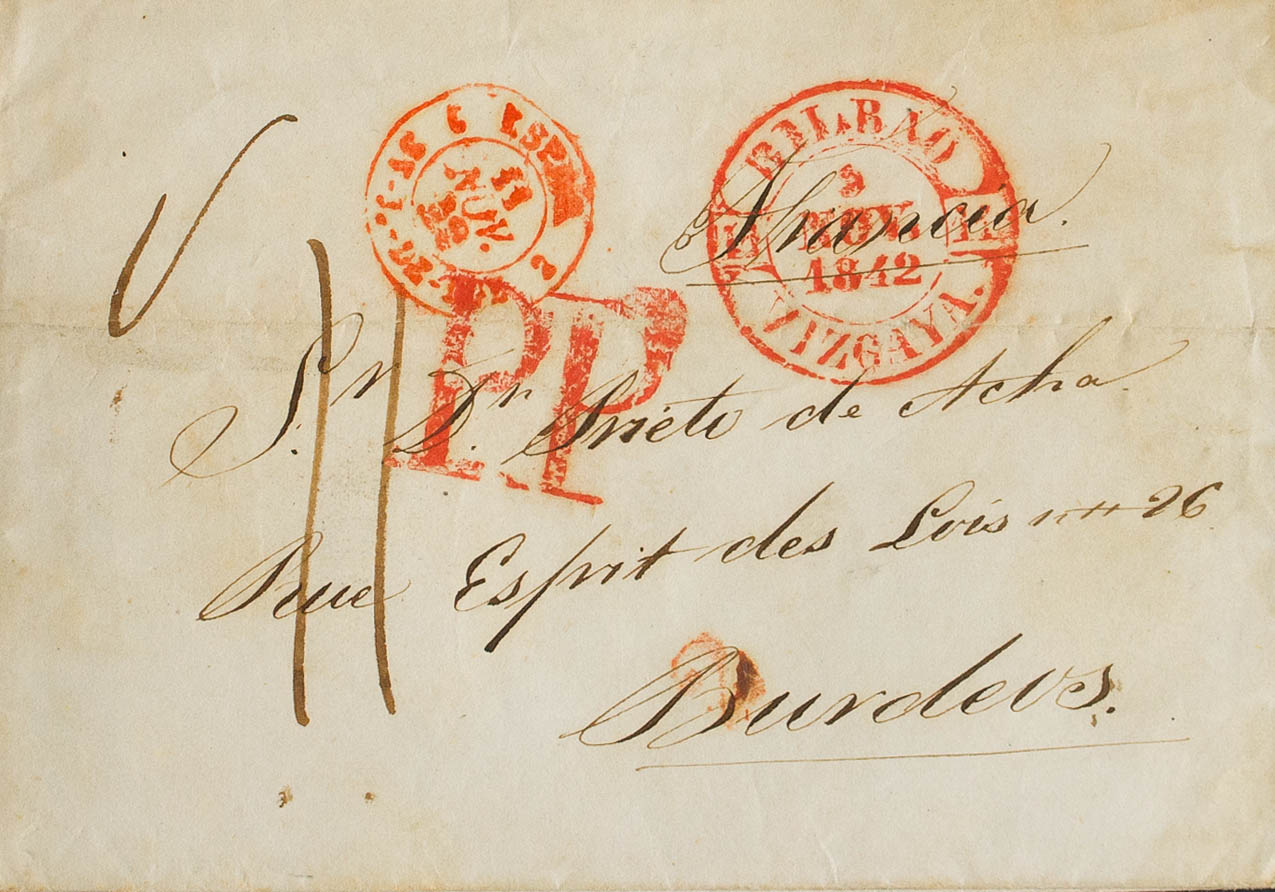 BILBAO
NOV.
1842
VIZCAYA.
Francia.
PP
S.r D.n Prieto de Acha
Rue Esprit des Lois nº 26
Burdeos.